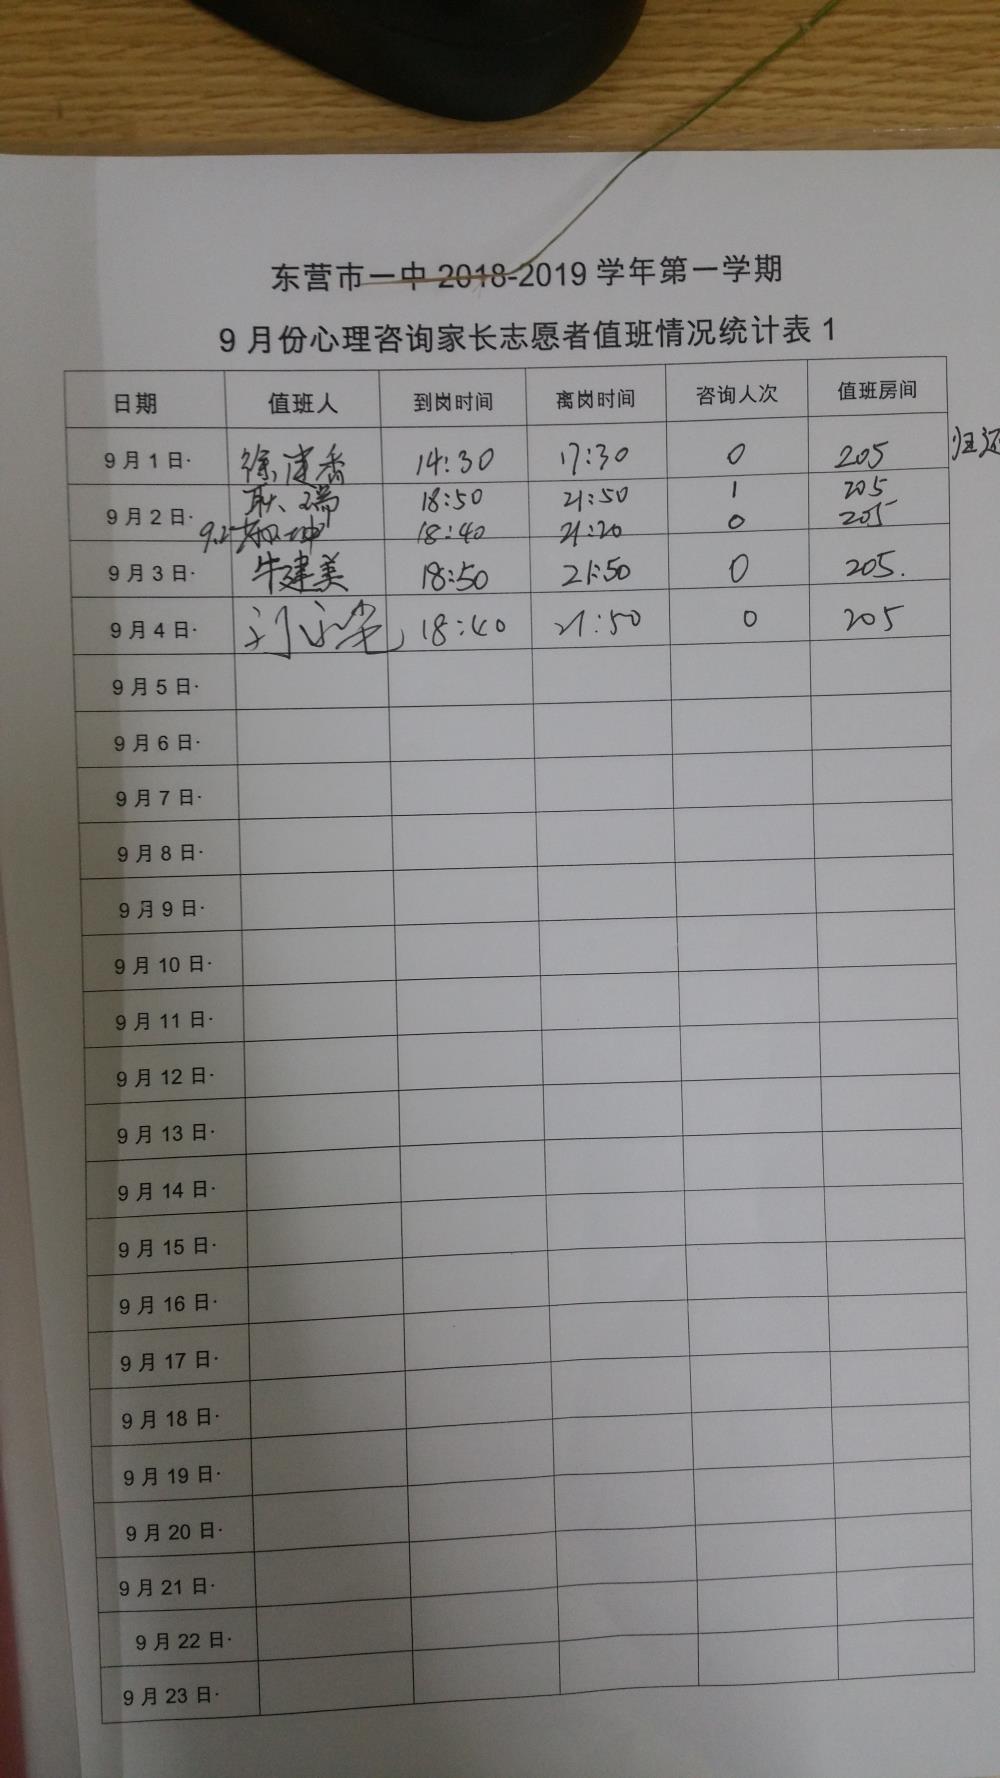 东营市一中 2018-2019 学年第一学期
9 月份心理咨询家长志愿者值班情况统计表 1
日期 值班人 到岗时间 离岗时间 咨询人次 值班房间
9 月 1 日· 徐建香 14:30 17:30 0 205 归还
9 月 2 日· 耿瑞 18:50 21:50 1 205
18:40 21:20 0 205
9 月 3 日· 牛建美 18:50 21:50 0 205.
9 月 4 日· 18:40 21:50 0 205
9 月 5 日·
9 月 6 日·
9 月 7 日·
9 月 8 日·
9 月 9 日·
9 月 10 日·
9 月 11 日·
9 月 12 日·
9 月 13 日·
9 月 14 日·
9 月 15 日·
9 月 16 日·
9 月 17 日·
9 月 18 日·
9 月 19 日·
9 月 20 日·
9 月 21 日·
9 月 22 日·
9 月 23 日·